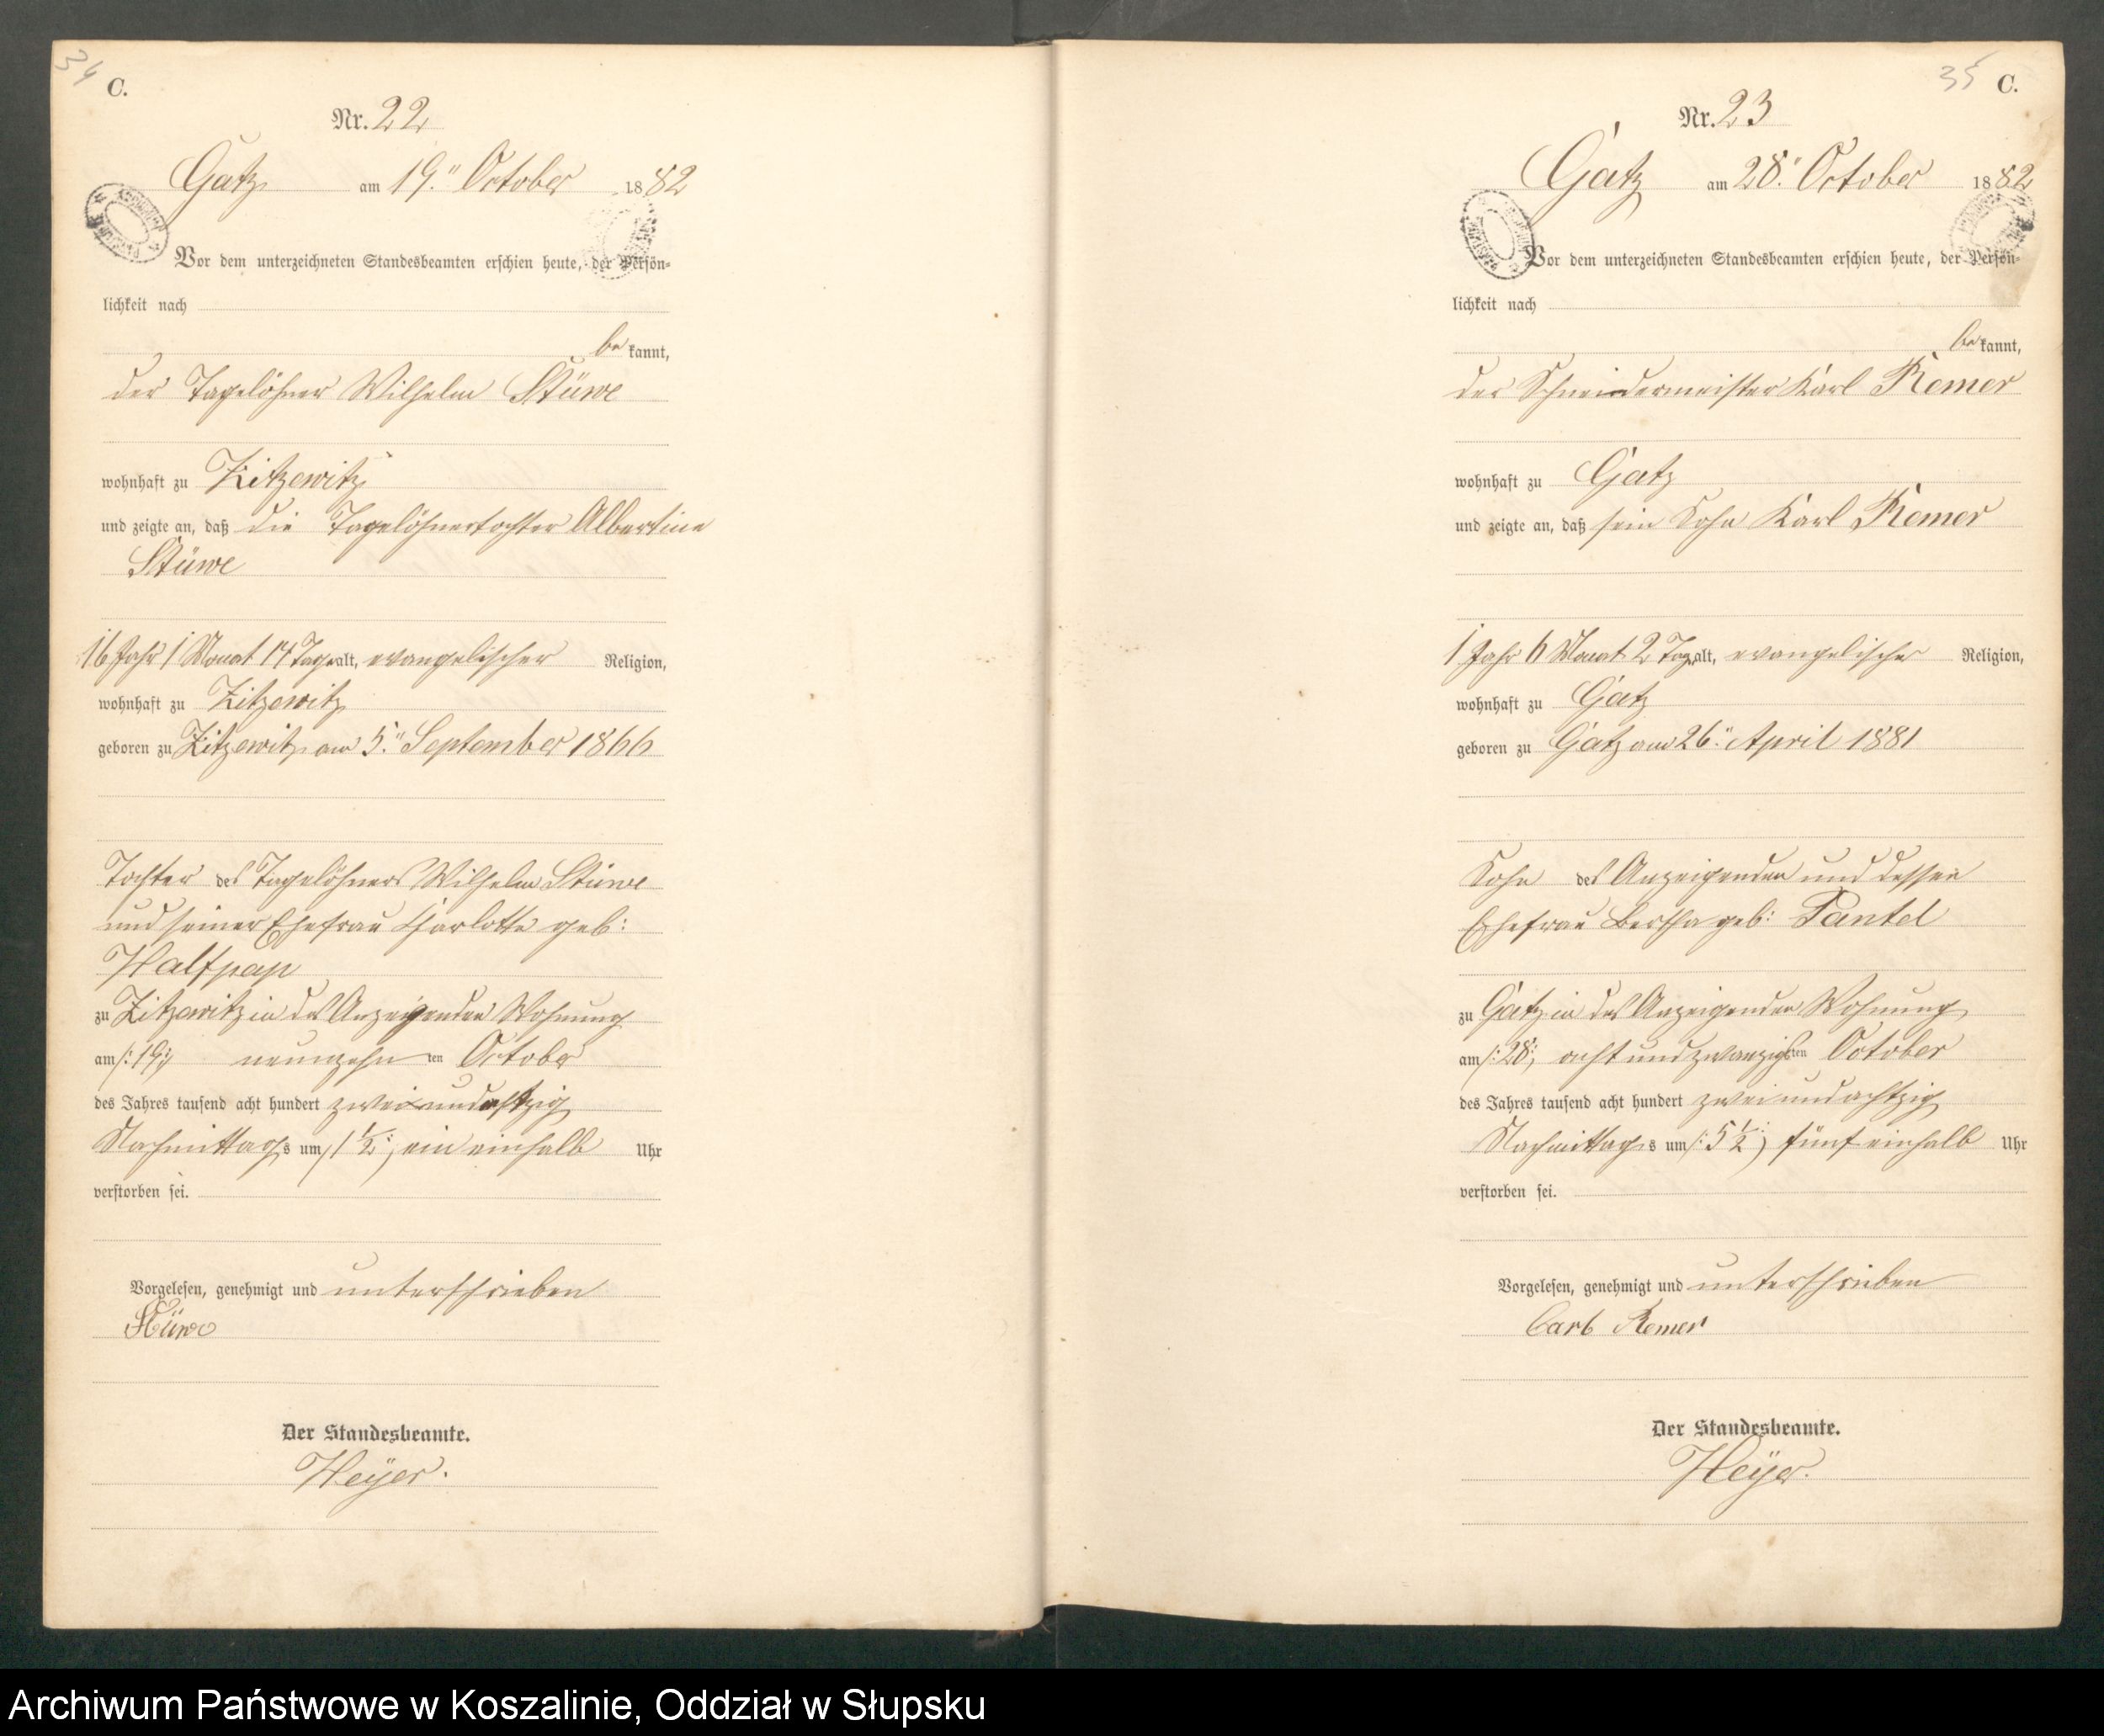 34 C.
Nr. 22
Gatz am 19." October 1882
Vor dem unterzeichneten Standesbeamten erschien heute, der Persön-
lichkeit nach
be kannt,
der Tagelöhner Wilhelm Stüwe
wohnhaft zu Zitzewitz
und zeigte an, daß die Tagelöhnertochter Albertine
Stüwe
16 Jahr 1 Monat 14 Tage alt, evangelischer Religion,
wohnhaft zu Zitzewitz
geboren zu Zitzewitz am 5." September 1866
Tochter des Tagelöhners Wilhelm Stüwe
und seiner Ehefrau Charlotte geb:
Halfpap
zu Zitzewitz in des Anzeigenden Wohnung
am /:19:/ neunzehn ten October
des Jahres tausend acht hundert zweiundachtzig
Nachmittags um /1½:/ ein einhalb Uhr
verstorben sei.
Vorgelesen, genehmigt und unterschrieben
Stüwe
Der Standesbeamte.
Heÿer.
35 C.
Nr. 23
Gatz am 28." October 1882
Vor dem unterzeichneten Standesbeamten erschien heute, der Persön-
lichkeit nach
be kannt,
der Schneidermeister Karl Remer
wohnhaft zu Gatz
und zeigte an, daß sein Sohn Karl Remer
1 Jahr 6 Monat 2 Tag alt, evangelischer Religion,
wohnhaft zu Gatz
geboren zu Gatz am 26." April 1881
Sohn des Anzeigenden und dessen
Ehefrau Bertha geb: Pantel
zu Gatz in des Anzeigenden Wohnung
am /:28:/ acht und zwanzigsten October
des Jahres tausend acht hundert zwei und achtzig
Nachmittags um /:5½:/ fünf einhalb Uhr
verstorben sei.
Vorgelesen, genehmigt und unterschrieben
Carl Remer
Der Standesbeamte.
Heÿer.
Archiwum Państwowe w Koszalinie, Oddział w Słupsku